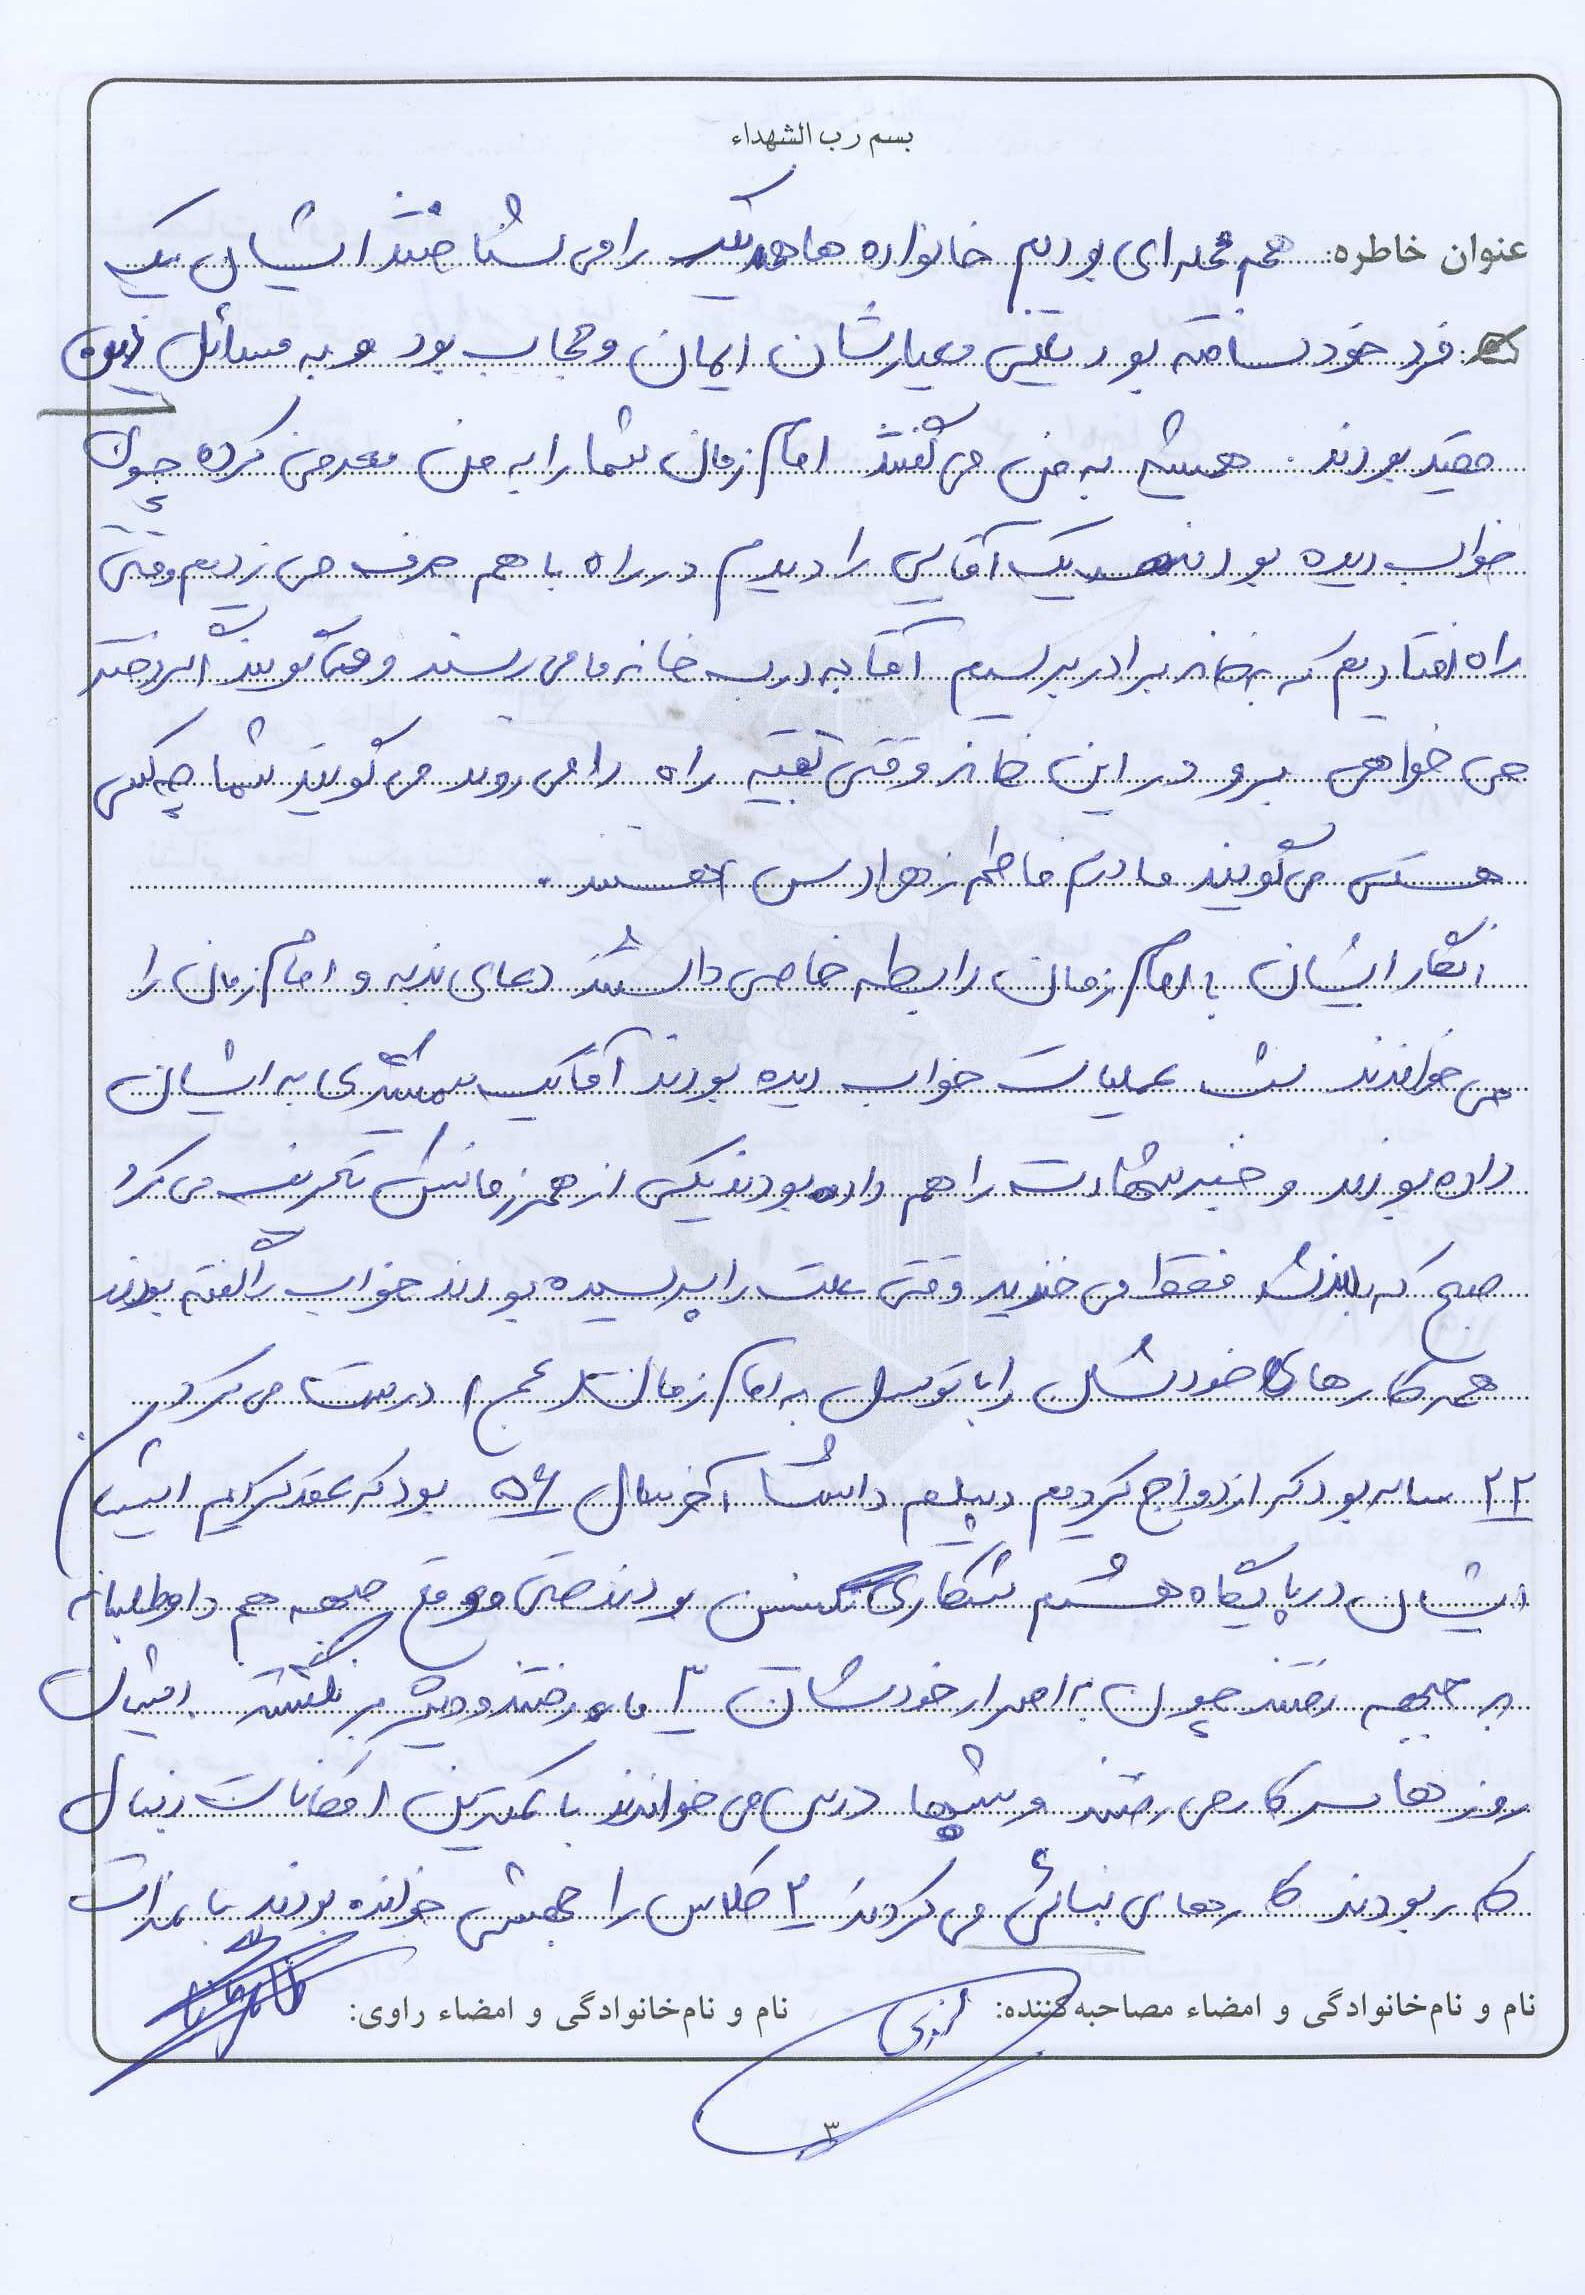 بسم رب الشهداء
عنوان خاطره: هم محله ای بودیم خانواده ها همدیگر را می شناختند ایشان یک
فرد خود ساخته بود یعنی معیارشان ایمان و حجاب بود و به مسائل دین
مقید بودند. همیشه به من می گفتند امام زمان شما را به من معرفی کرده چون
خواب دیده بودند یک آقایی را دیدم در راه با هم حرف می زدیم وقتی
راه افتادیم که به خانه برادر برسیم آقا به درب خانه ما می رسند و می گویند اگر دختر
می خواهی برو در این خانه وقتی بقیه راه را می روند می گویند شما چه کسی
هستی می گویند مادرم فاطمه زهرا (س) هستند.
انگار ایشان با امام زمان رابطه خاصی داشتند دعای ندبه و امام زمان را
می خواندند شب عملیات خواب دیده بودند آقا یک به ایشان
داده بودند و خبر شهادت را هم داده بودند یکی از همرزمانش تعریف می کرد
صبح که بلند شد فقط می خندید وقتی علت را پرسیده بودند خواب را گفته بودند
همه کارهای خودشان را با توسل به امام زمان (عج) درست می کرد.
۲۲ ساله بود که ازدواج کردیم دیپلم داشت آخر سال ۵۶ بود که عقد کردیم ایشان
ایشان در پایگاه هشتم شکاری بودند حتی موقع جبهه هم داوطلبانه
به جبهه رفتند چون به اصرار خودشان ۳ ماه رفتند و دیگر برنگشتند. ایشان
روزها سر کار می رفتند و شبها درس می خواندند با کمترین امکانات دنبال
کار بودند کارهای بنائی می کردند ۲ کلاس را جهشی خوانده بودند با نمرات
نام و نام‌خانوادگی و امضاء مصاحبه‌کننده: نام و نام‌خانوادگی و امضاء راوی:
۳